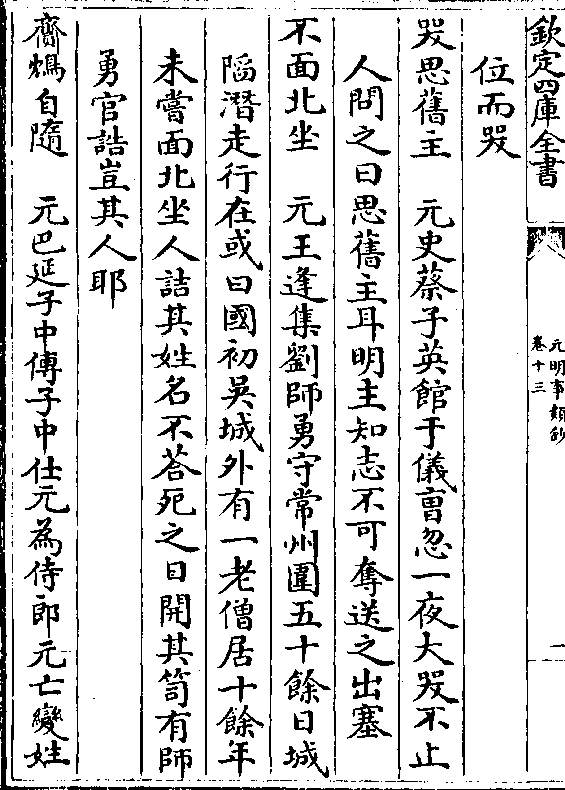 欽定四庫全書
元明事類鈔
卷十三
一
位而哭
哭思舊主 元史蔡子英館于儀曹忽一夜大哭不止
人問之曰思舊主耳明主知志不可奪送之出塞
不面北坐 元王逢集劉師勇守常州圍五十餘日城
䧟潛走行在或曰國初吳城外有一老僧居十餘年
未嘗面北坐人詰其姓名不答死之日開其笥有師
勇官誥豈其人耶
齎鴆自隨 元巴延子中傳子中仕元為侍郎元亡變姓